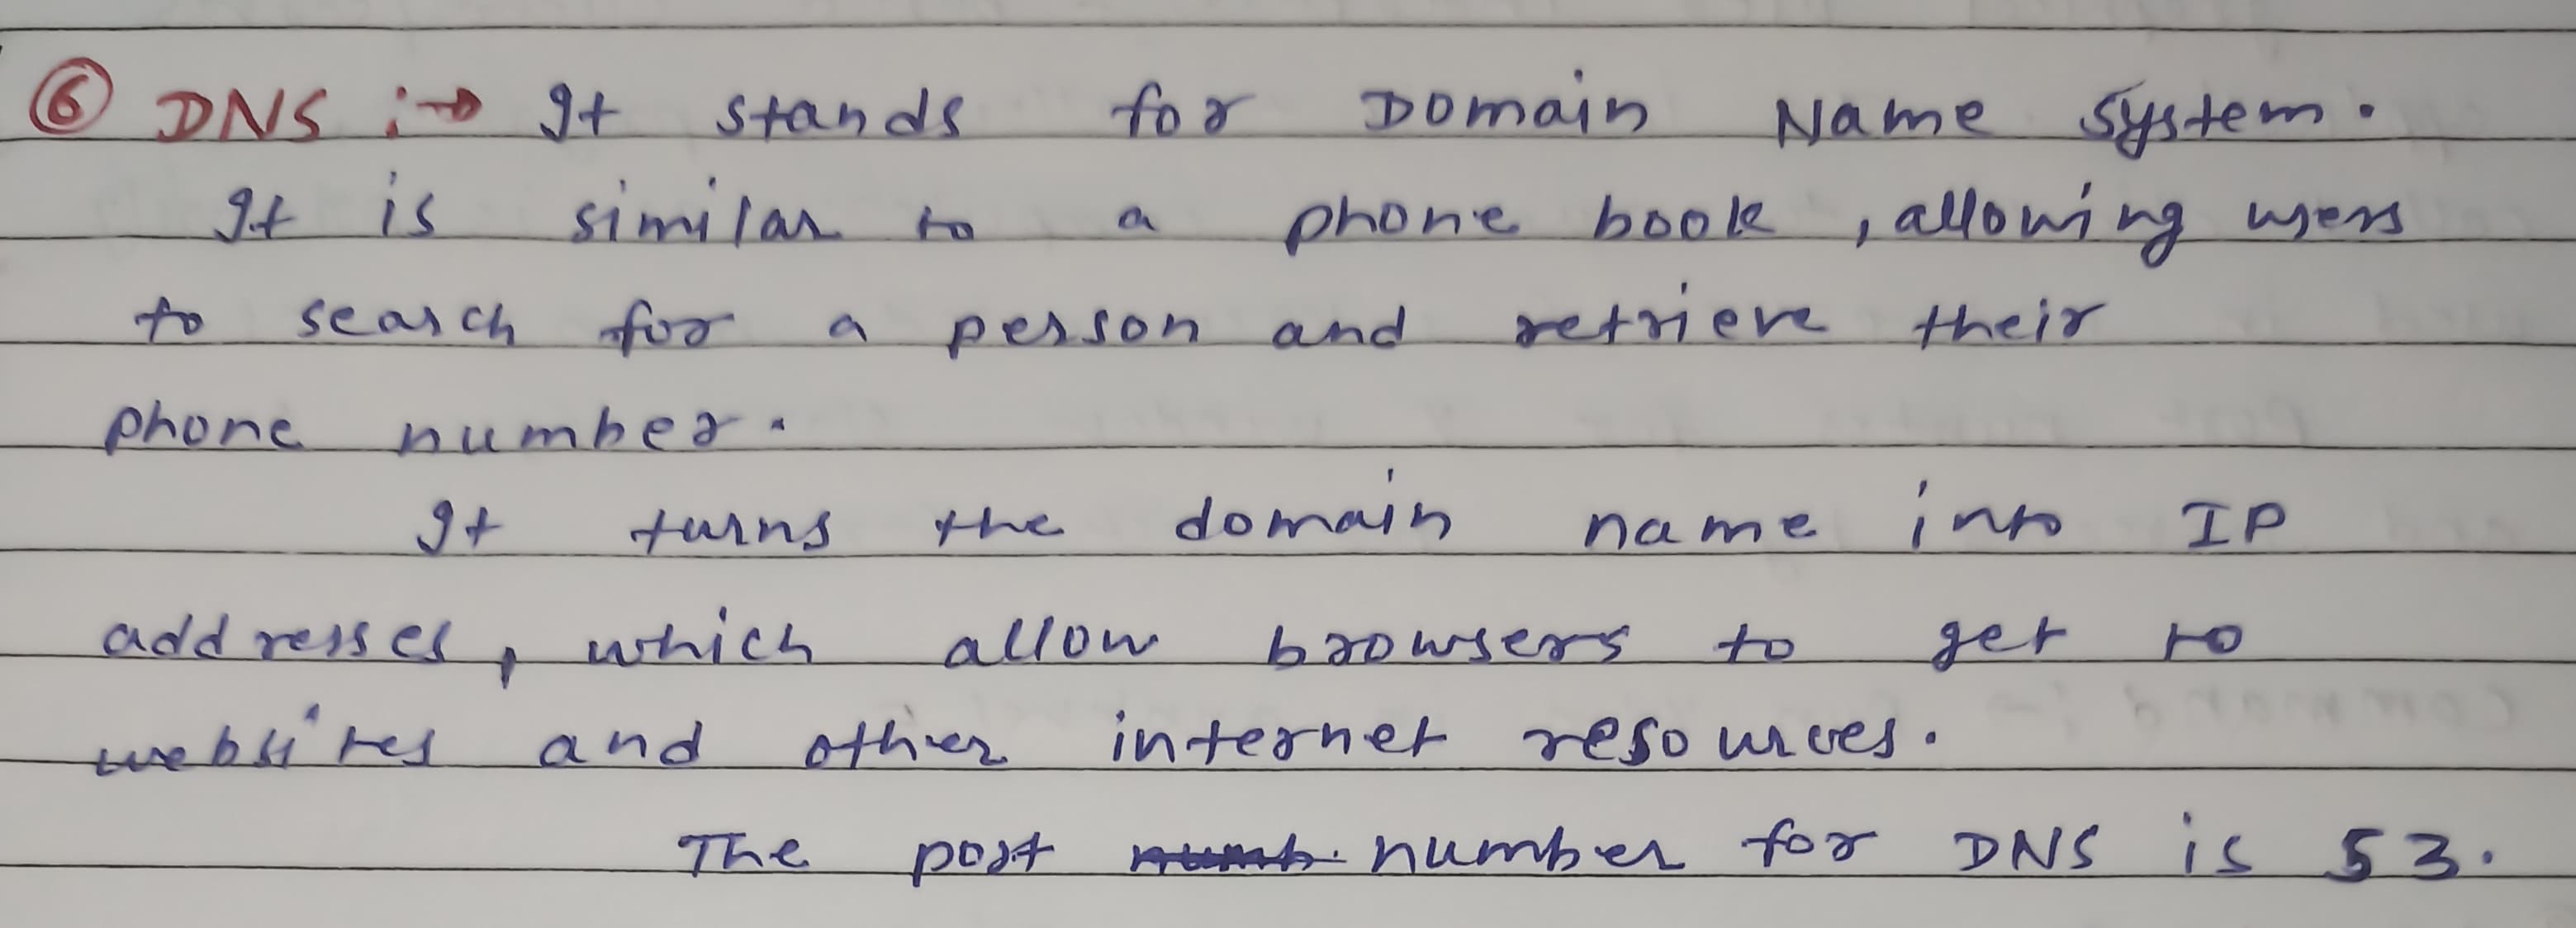 ⑥ DNS :→ It stands for Domain Name System.
It is similar to a phone book, allowing users
to search for a person and retrieve their
phone number.
It turns the domain name into IP
addresses, which allow browsers to get to
websites and other internet resources.
The port number for DNS is 53.